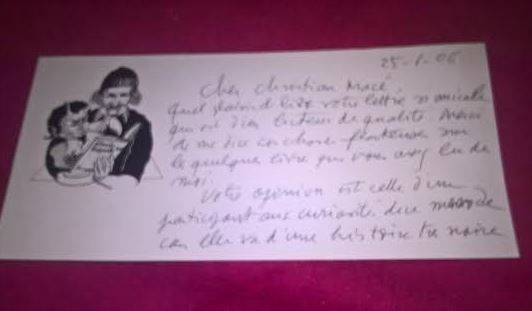 25-1-06
Cher Christian Macé,
Quel plaisir de lire votre lettre si amicale
qui est d'un lecteur de qualité. Merci
de me dire ces choses flatteuses sur
le quelque livre que vous avez lu de
moi.
Votre opinion est celle d'un
participant aux curiosités du
car d'une histoire très noire